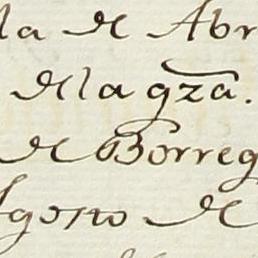 la de Abr
de la gza.
de Borreg
gosto de